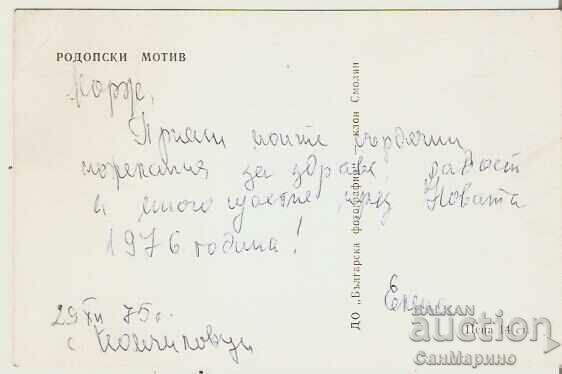 РОДОПСКИ МОТИВ
Жорж,
Приеми моите сърдечни
пожелания за здраве, радост
и много щастие през Новата
1976 година!
Елена
29 XII 75 г.
с.
ДО „Българска фотография“ клон Смолян
Цена 14 ст.
BALKAN
auction
СанМарино